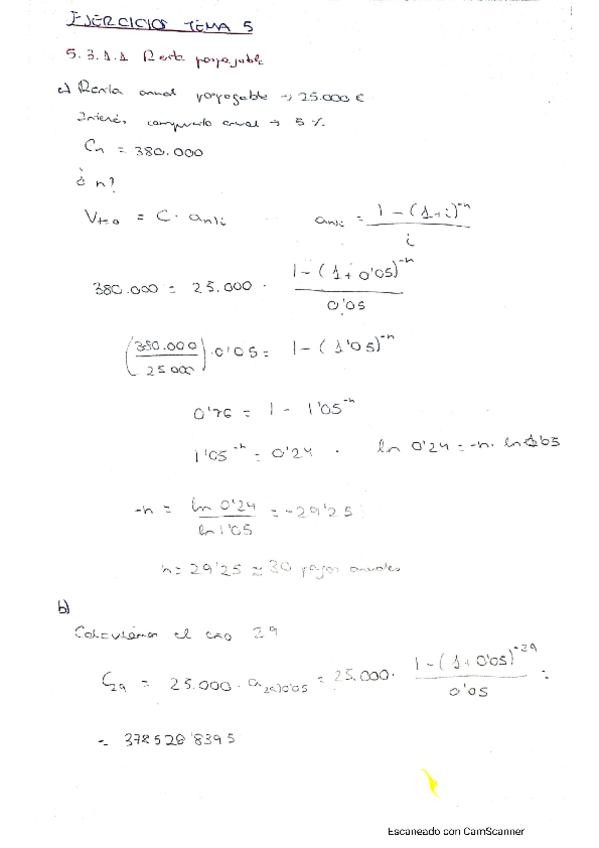 EJERCICIOS TEMA 5
5.3.1.1 Renta pospagable
a) Renta anual pospagable → 25.000 €
Interés compuesto anual → 5 %
Cn = 380.000
¿ n?
Vt=0 = C · an|i an|i = 1 - (1+i)^-n / i
380.000 = 25.000 · 1 - (1 + 0'05)^-n / 0'05
(380.000 / 25000) · 0'05 = 1 - (1'05)^-n
0'76 = 1 - 1'05^-n
1'05^-n = 0'24 · ln 0'24 = -n · ln 1'05
-n = ln 0'24 / ln 1'05 = -29'25
n = 29'25 ≈ 30 pagos anuales
b)
Calculamos el año 29
C29 = 25.000 · a29|0'05 = 25.000 · 1 - (1 + 0'05)^-29 / 0'05 =
= 378526'8395
Escaneado con CamScanner